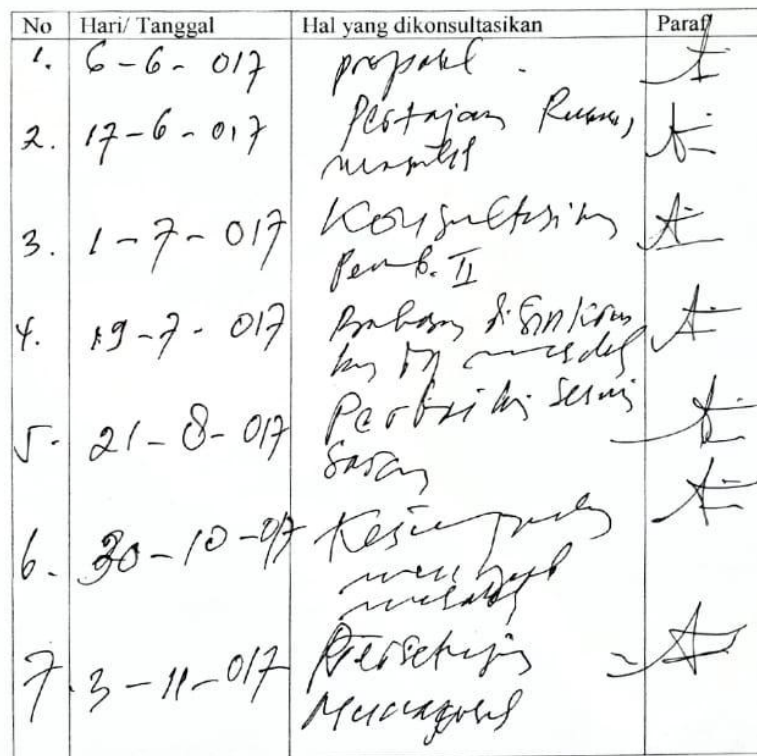 No Hari/ Tanggal Hal yang dikonsultasikan Paraf
1. 6-6-017 proposal.
2. 17-6-017 Pertajam Rumus,
masalah
3. 1-7-017 Konsultasi
Pemb. II
4. 19-7-017
5. 21-8-017 Perbaiki sesuai
Saran
6. 30-10-017 Kesimpulan
menjawab
masalah
7. 3-11-017 Persetujuan
Munaqosah